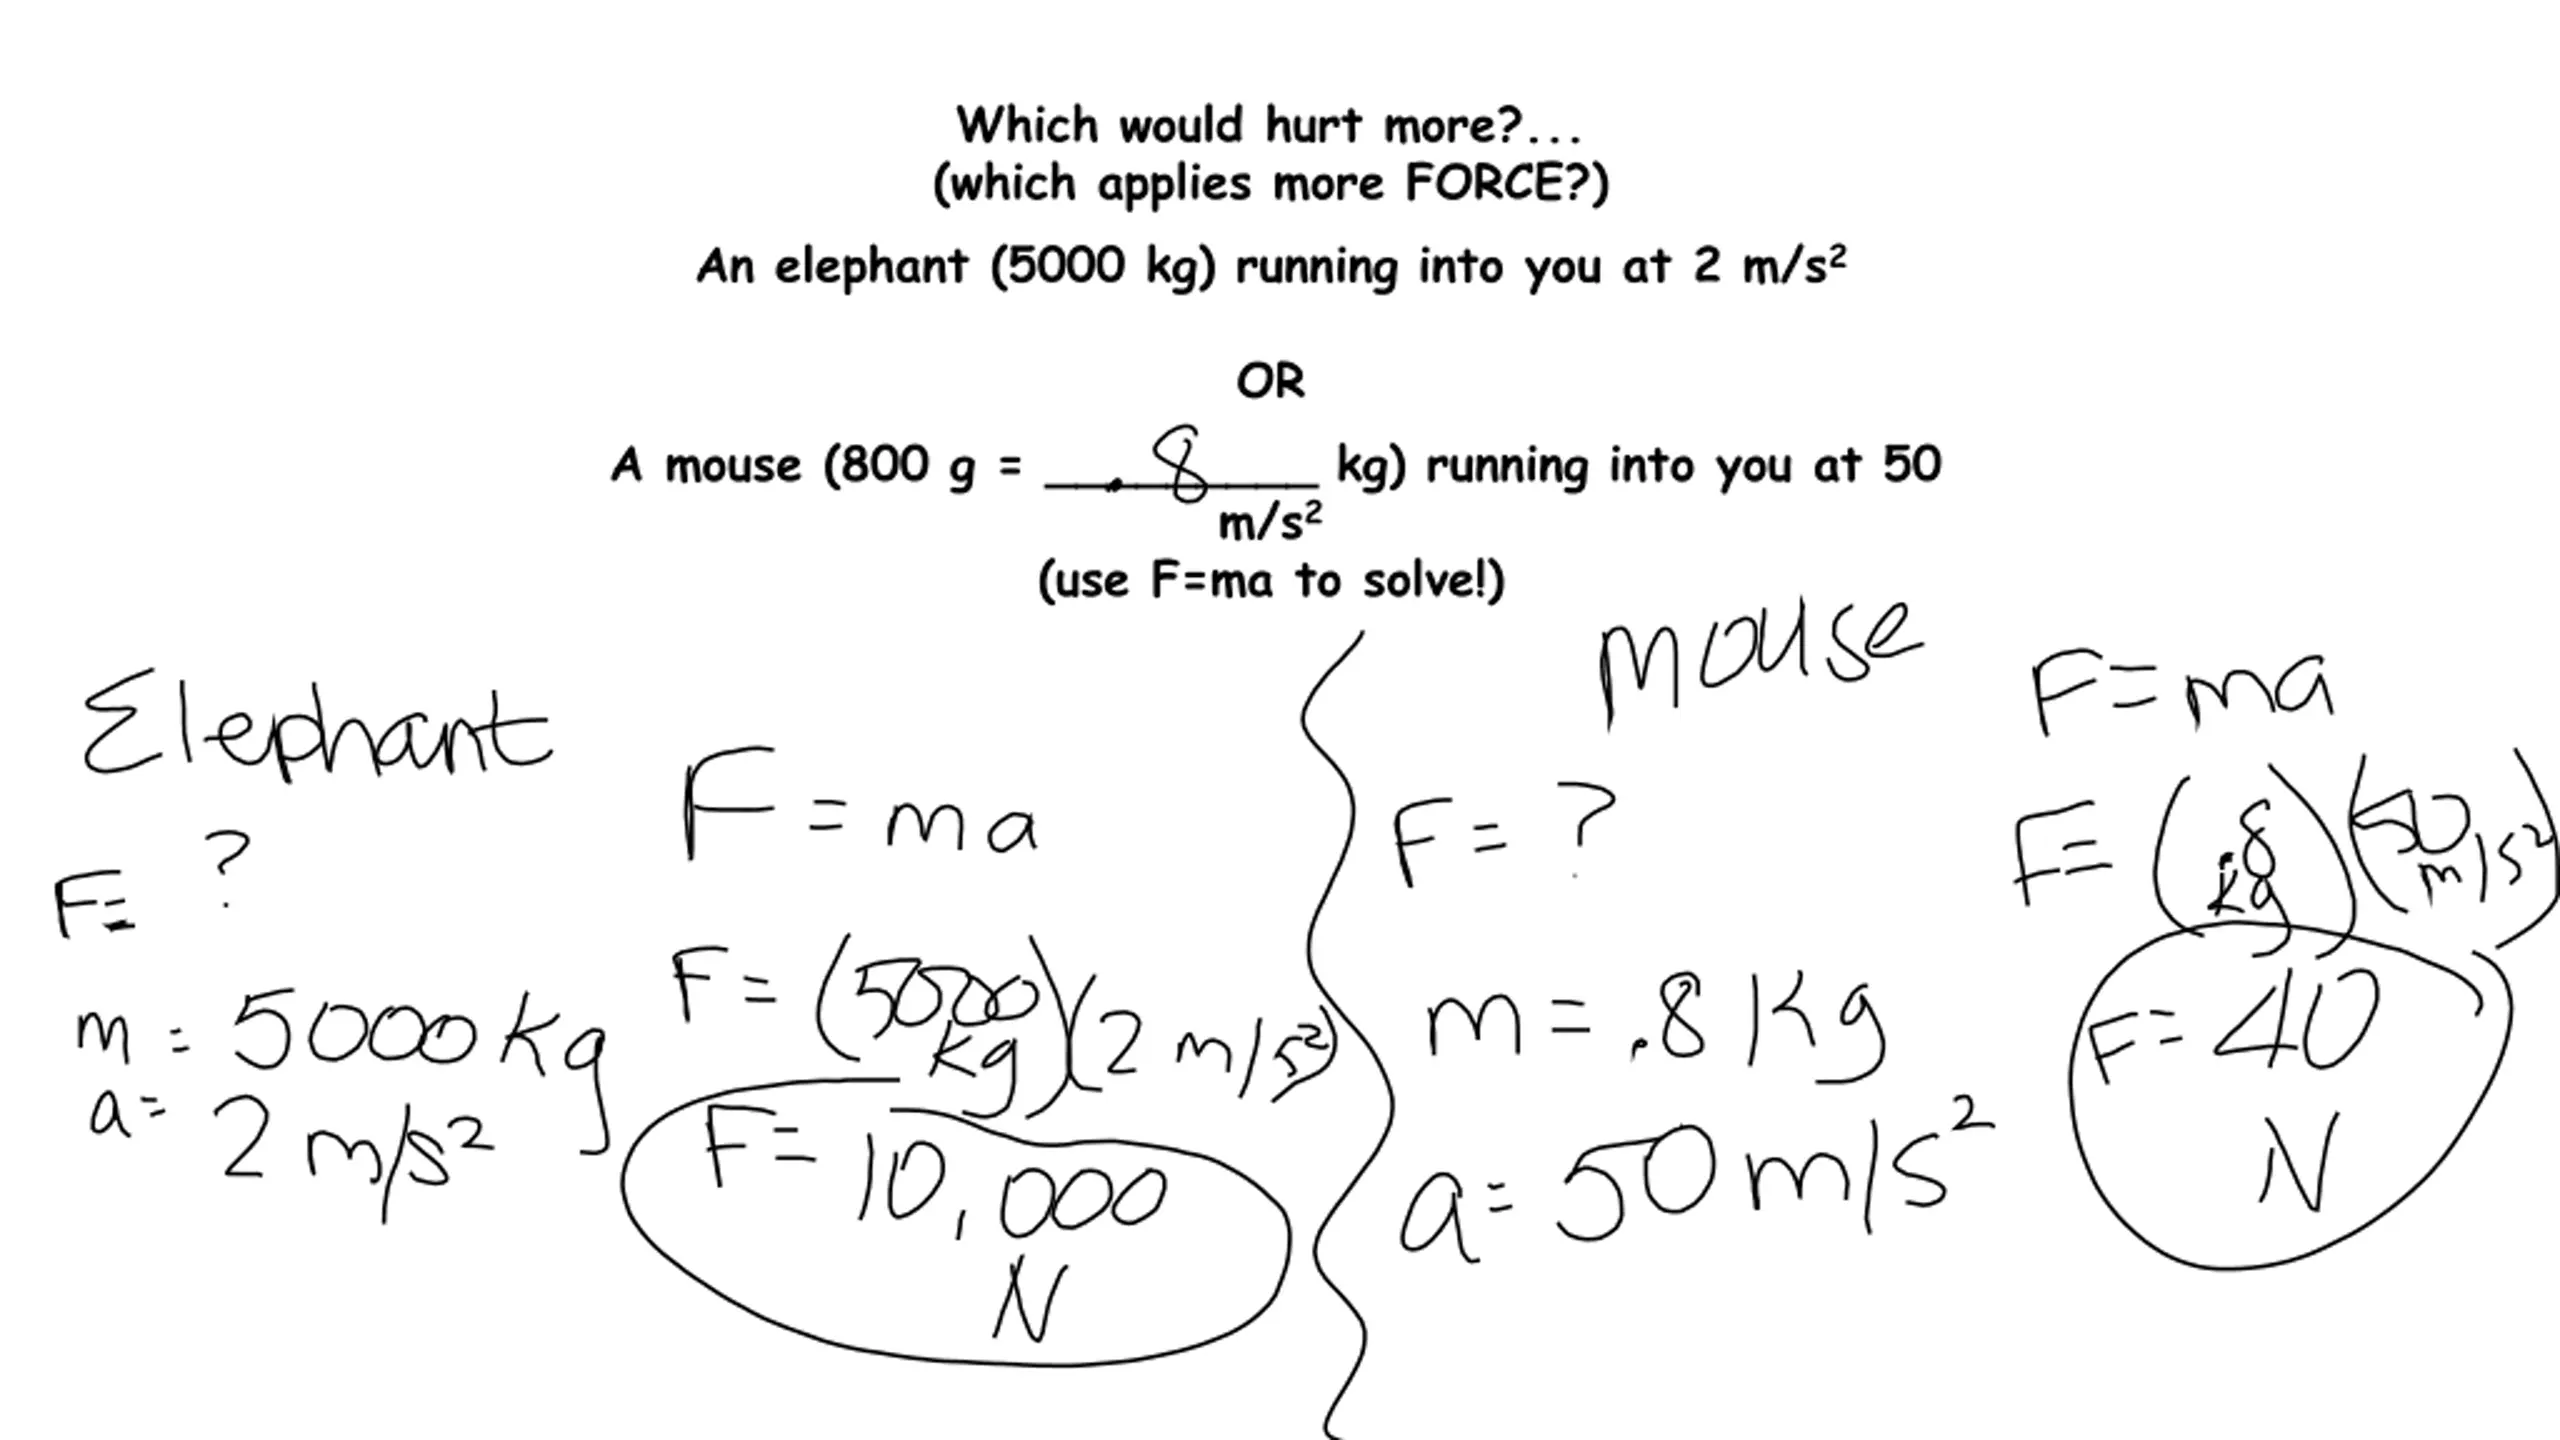 Which would hurt more?...
(which applies more FORCE?)
An elephant (5000 kg) running into you at 2 m/s²
OR
A mouse (800 g = .8 kg) running into you at 50
m/s²
(use F=ma to solve!)
Elephant
F= ?
m = 5000 kg
a= 2 m/s²
F = ma
F = (5000 kg)(2 m/s²)
F= 10,000
N
Mouse
F= ?
m = .8 kg
a= 50 m/s²
F=ma
F= (.8 kg)(50 m/s²)
F= 40
N